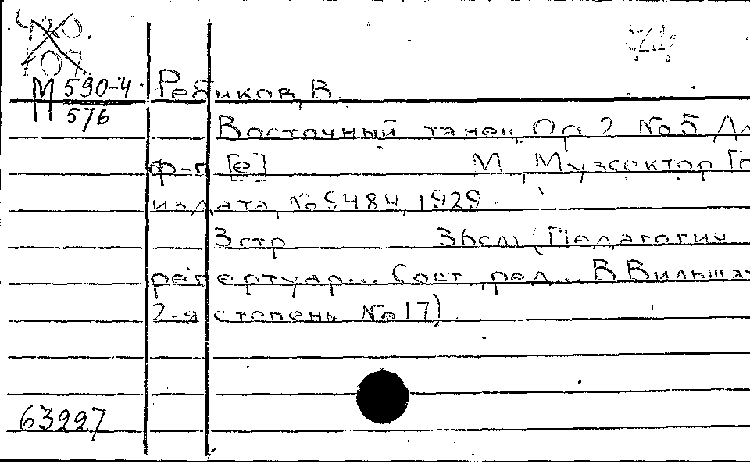 М 590-4
576
Ребиков, В.
Восточный танец, Op 2 № 5 Дл
ф-п [e] М, Музсектор Го
издата, № 9484, 1929.
3 стр 36сm (Педагогич
репертуар... Сост., ред... В Вильша
2-я степень № 17)
63227